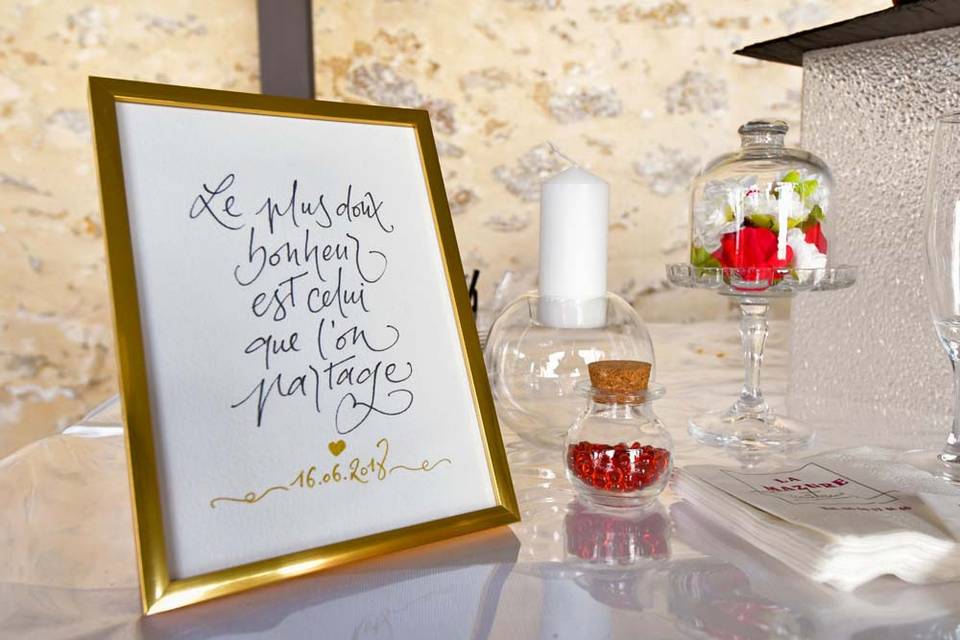 Le plus doux
bonheur
est celui
que l'on
partage
16.06.2018
LA
MAZURE